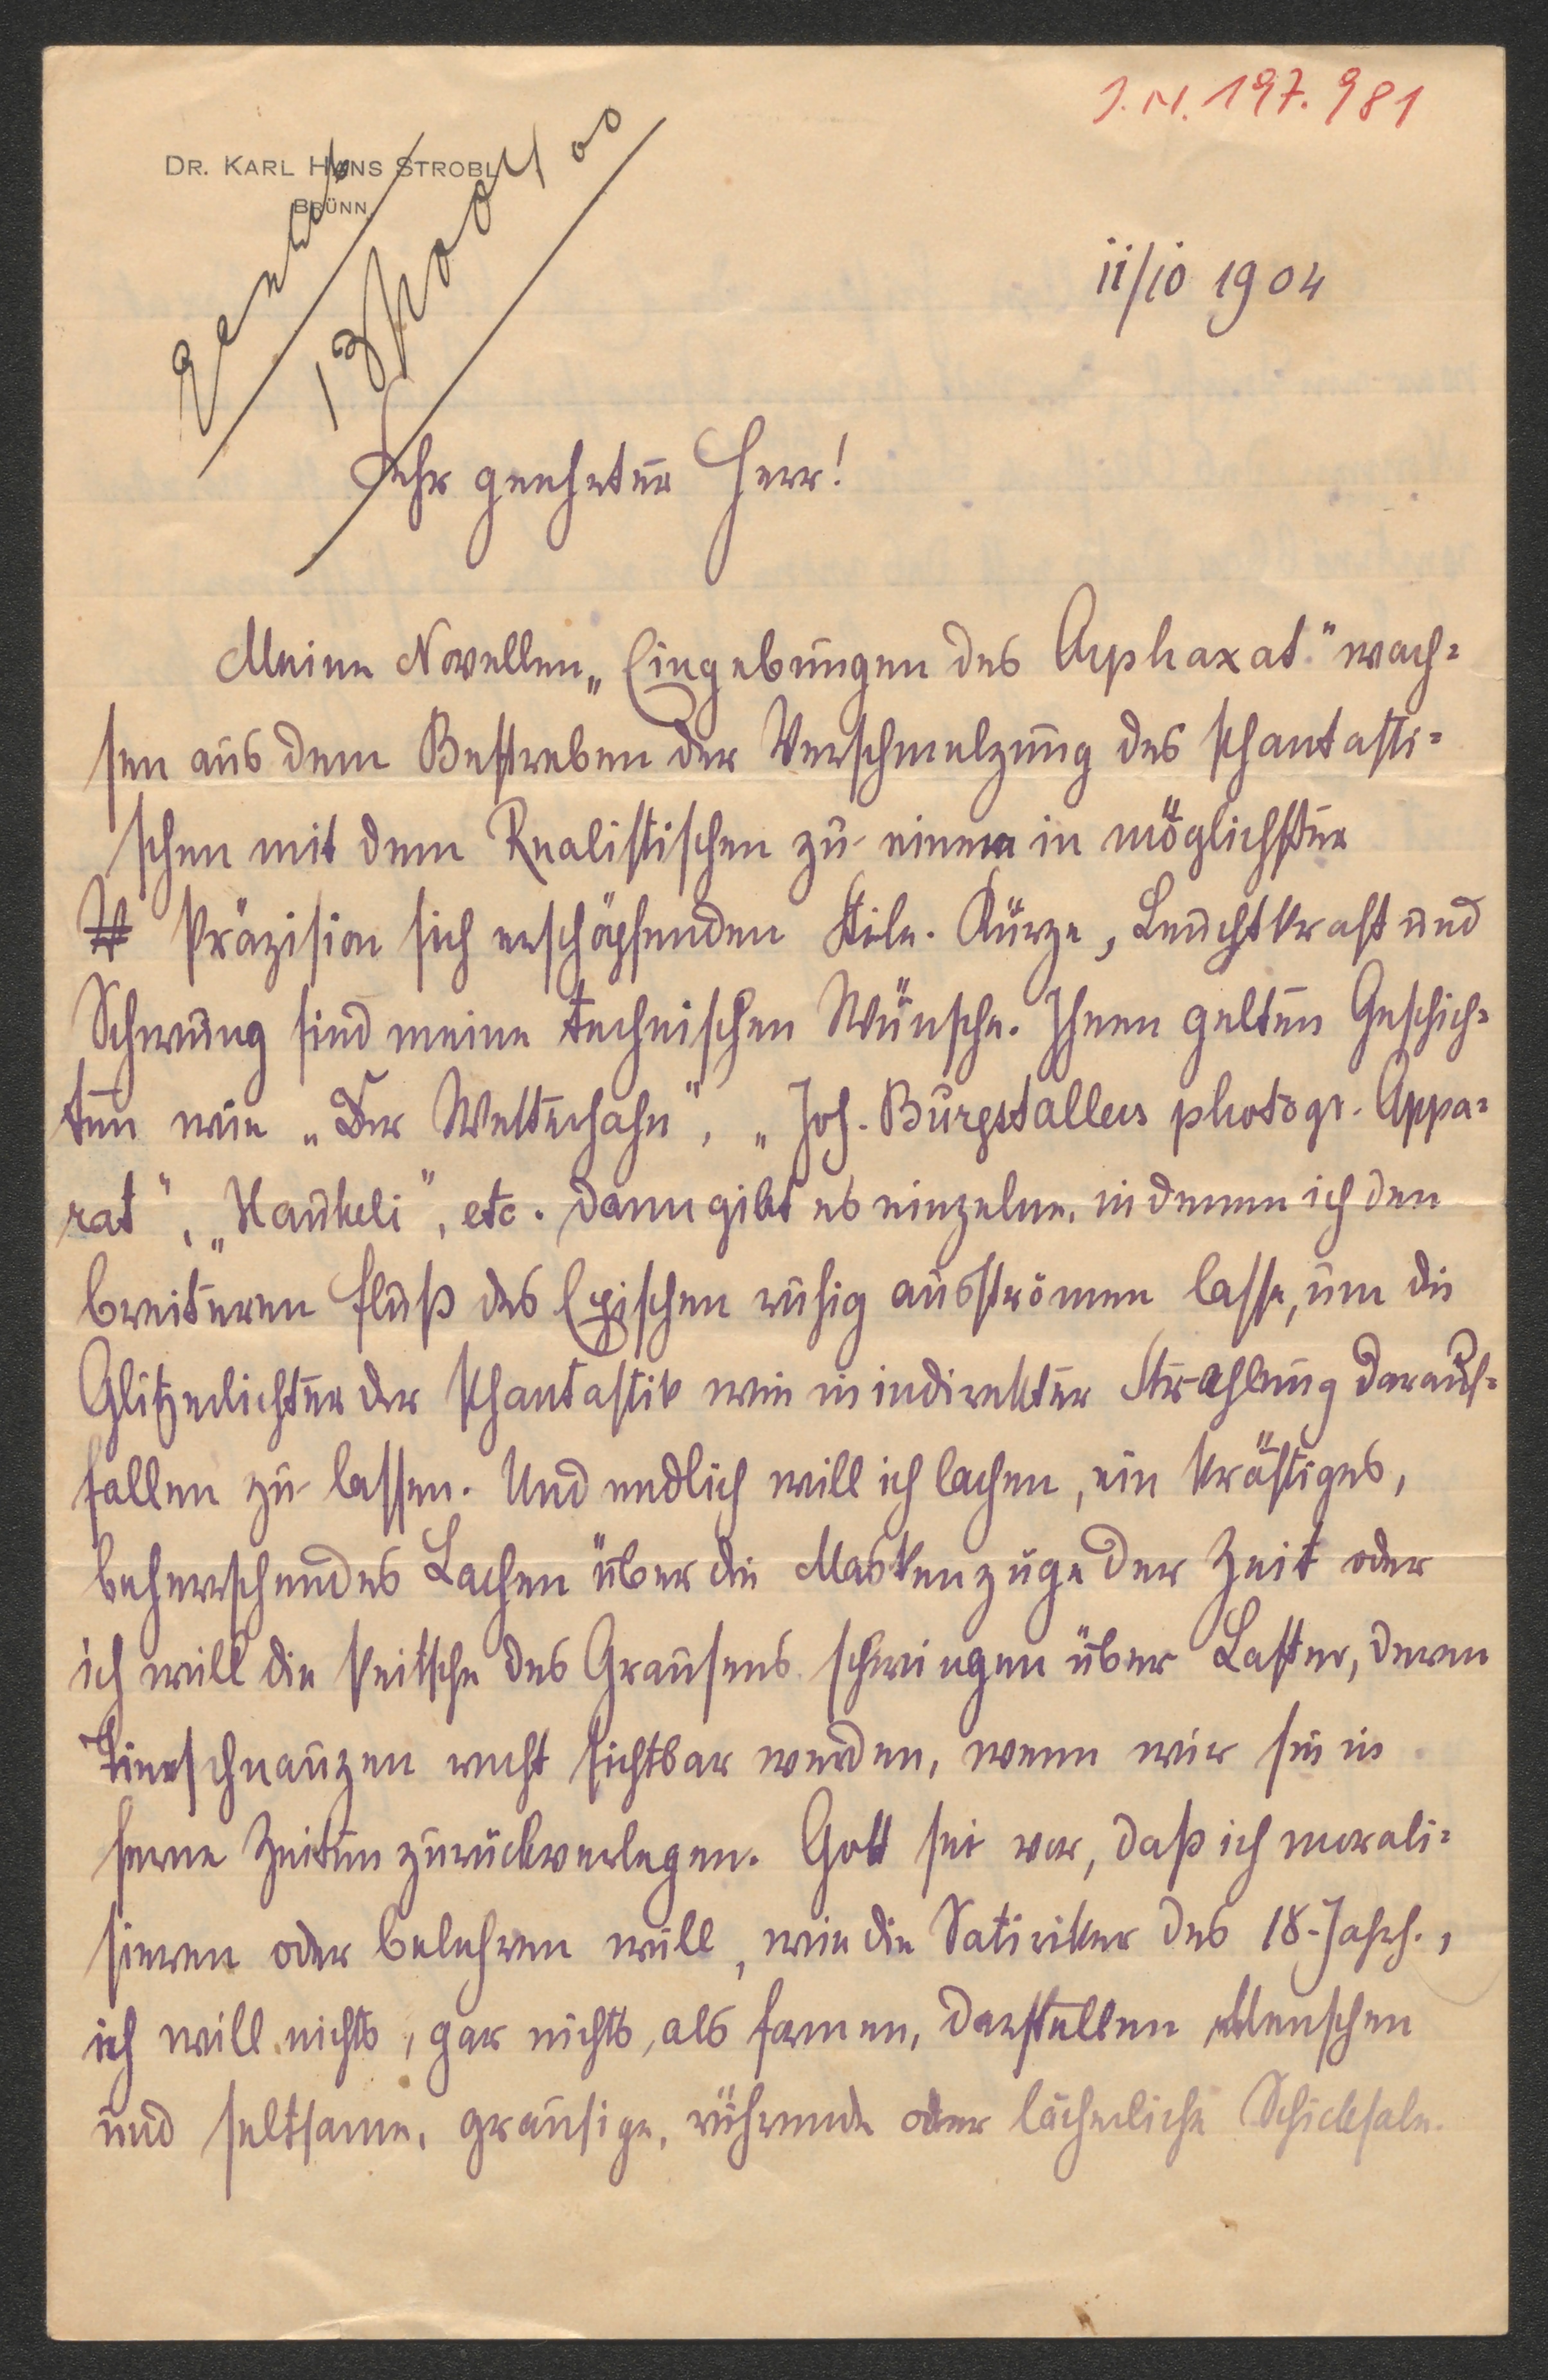 J. N. 197.981
DR. KARL HANS STROBL
BRÜNN.
11/10 1904
Sehr geehrter Herr!
Meine Novellen „Eingebungen des Arphaxat" wach=
sen aus dem Bestreben der Verschmelzung des Phantasti=
schen mit dem Realistischen zu einem in möglichster
Präzision sich erschöpfenden Stile. Kürze, Leuchtkraft und
Schwung sind meine technischen Wünsche. Ihnen gelten Geschich=
ten wie „Der Wetterhahn", „Joh. Burgstallers photogr. Appa=
rat", „Hautkeli", etc. Dann gibt es einzelne, in denen ich den
breiteren Fluß des Epischen ruhig ausströmen lasse, um die
Glitzerlichter der Phantastik wie in indirekter Strahlung darauf=
fallen zu lassen. Und endlich will ich lachen, ein kräftiges,
beherrschendes Lachen über die Maskenzüge der Zeit oder
ich will die Peitsche des Grausens schwingen über Laster, deren
Tierschnauzen recht sichtbar werden, wenn wir sie in
ferne Zeiten zurückverlegen. Gott sei vor, daß ich morali=
sieren oder belehren will, wie die Satiriker des 18. Jahrh.,
ich will nichts, gar nichts, als formen, darstellen Menschen
und seltsame, grausige, rührende oder lächerliche Schicksale.